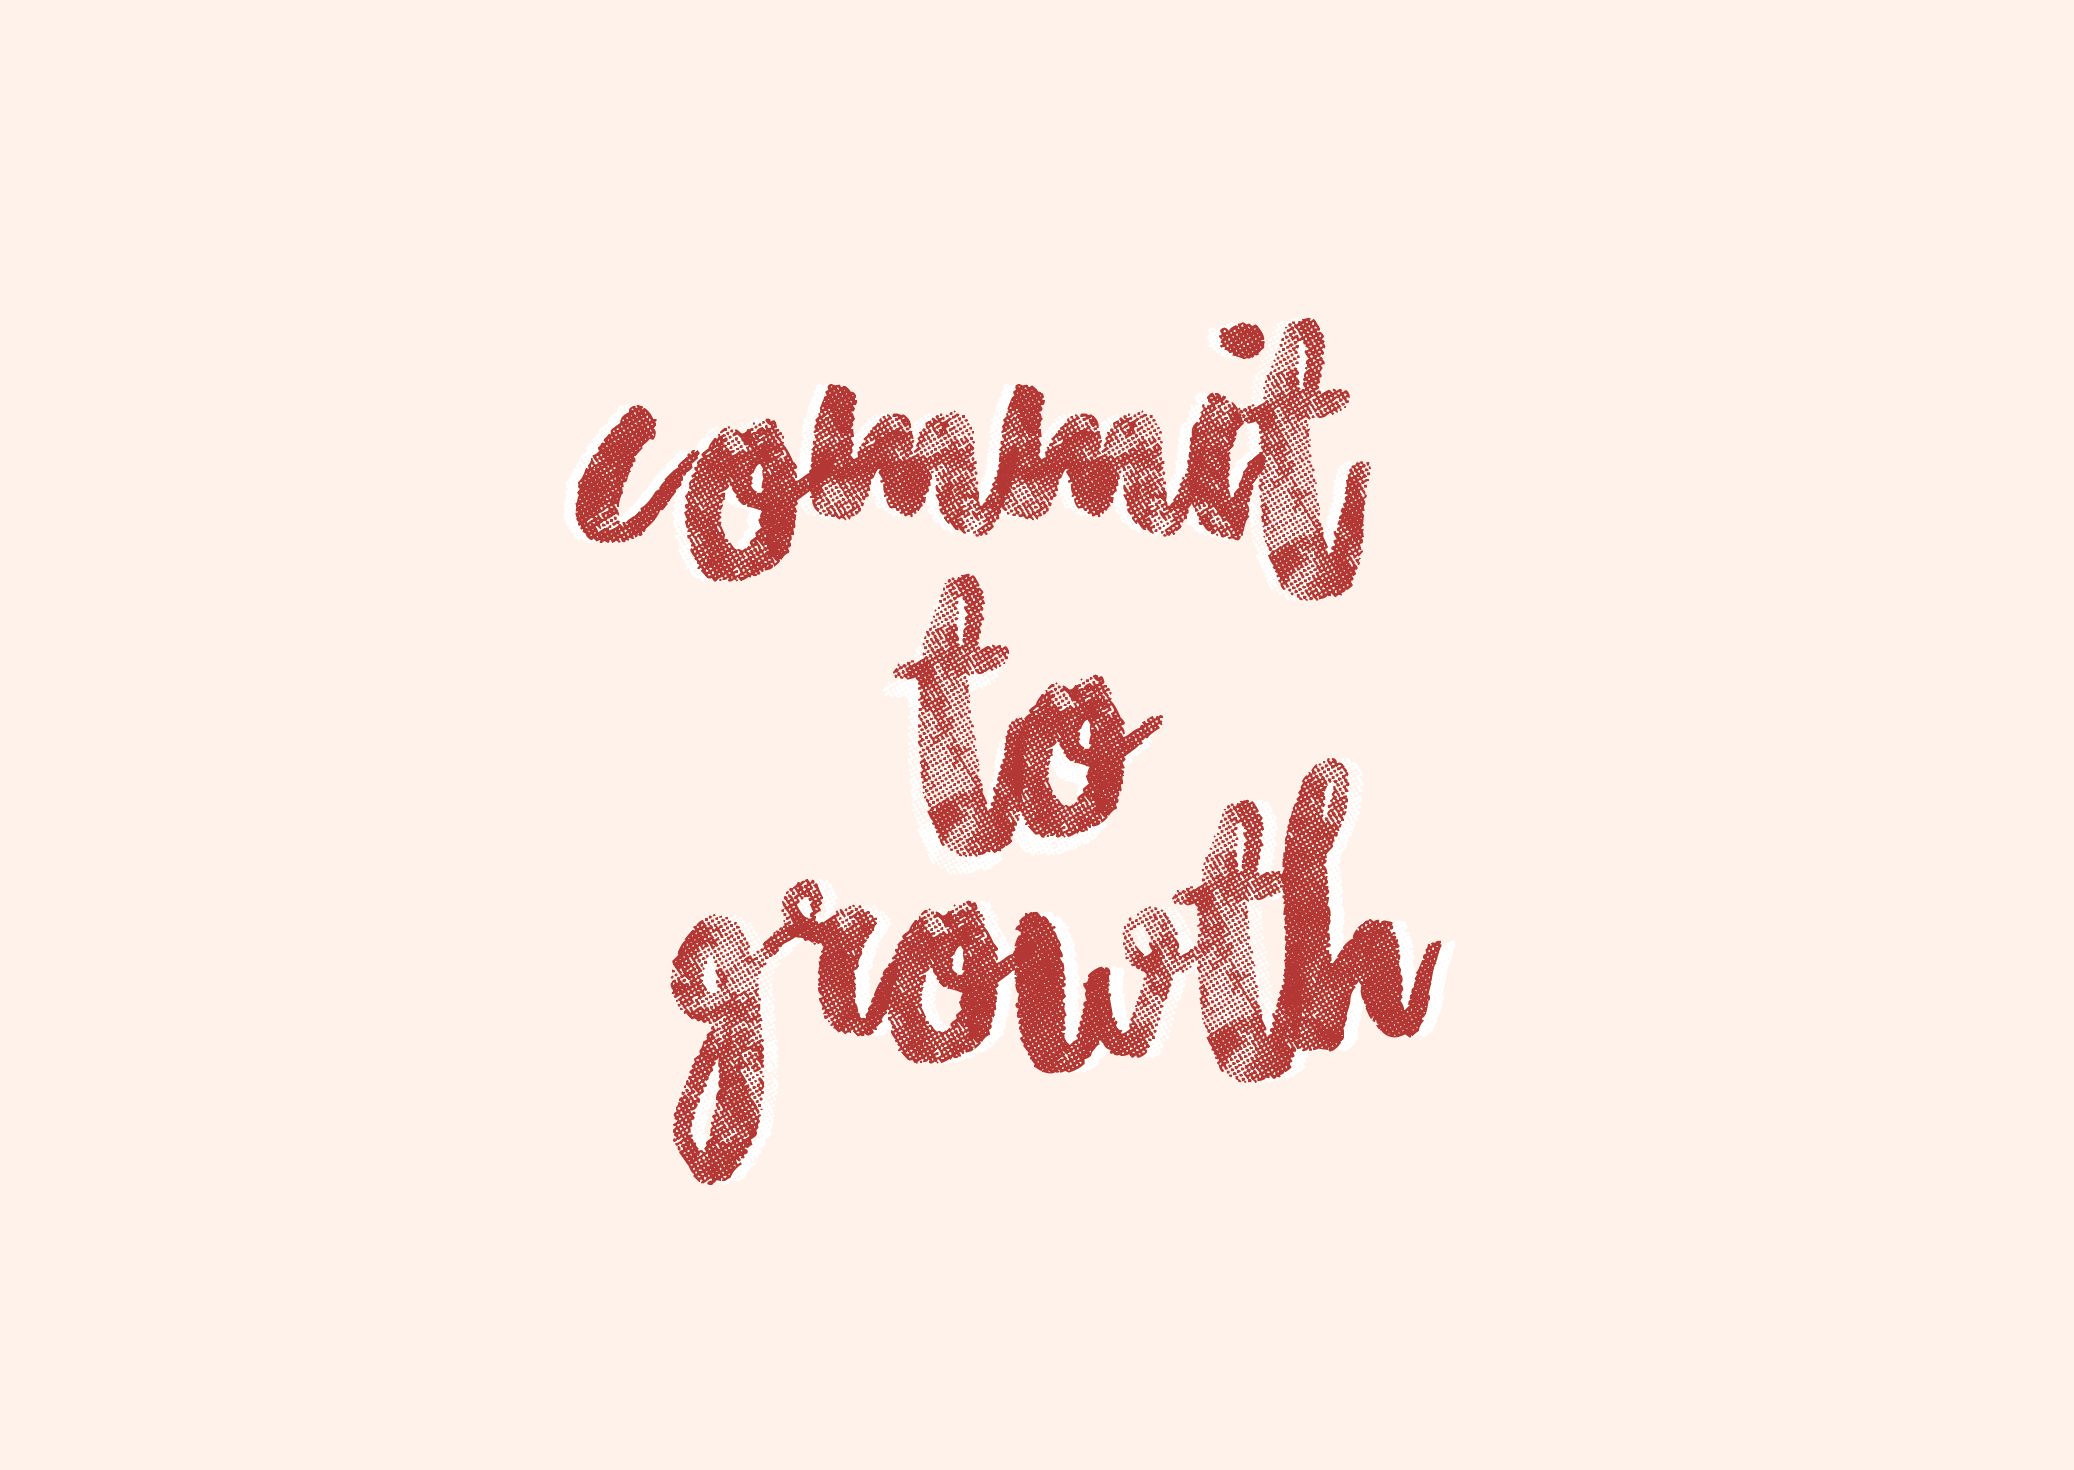 commit
to
growth